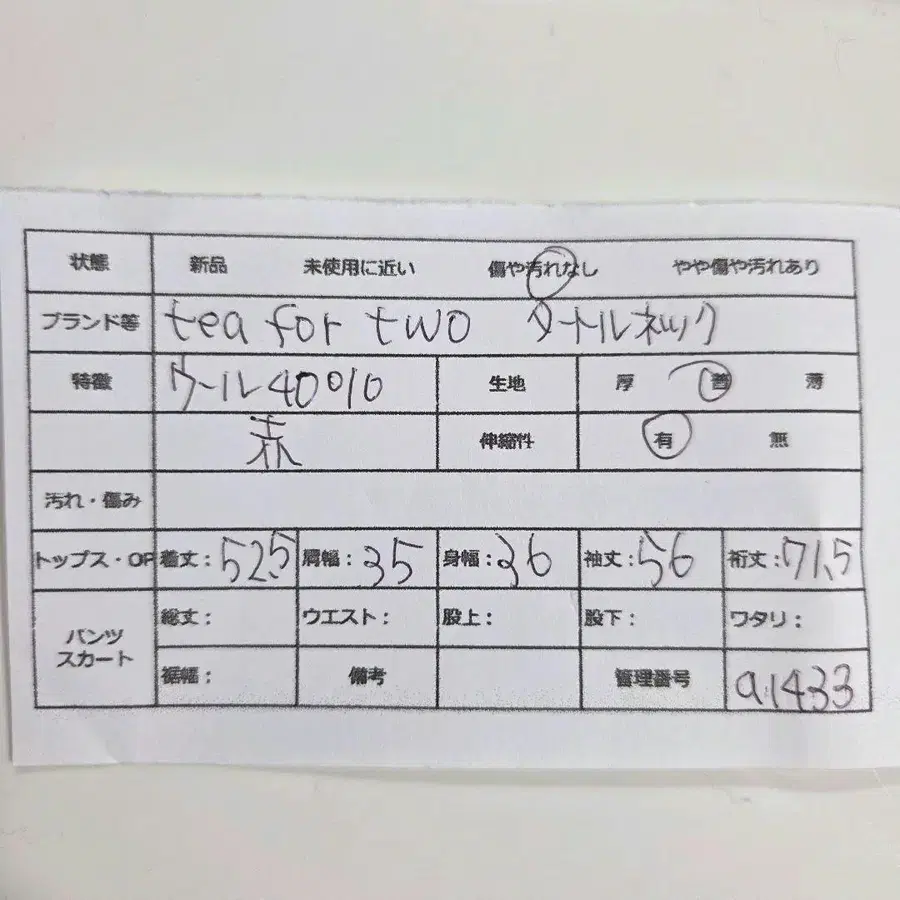 状態 新品 未使用に近い 傷や汚れなし やや傷や汚れあり
ブランド等 tea for two タートルネック
特徴 ウール40% 生地 厚 普 薄
伸縮性 有 無
汚れ・傷み
トップス・OP 着丈：52.5 肩幅：35 身幅：36 袖丈：56 裄丈：71.5
パンツ スカート 総丈： ウエスト： 股上： 股下： ワタリ：
裾幅： 備考 管理番号 a1433